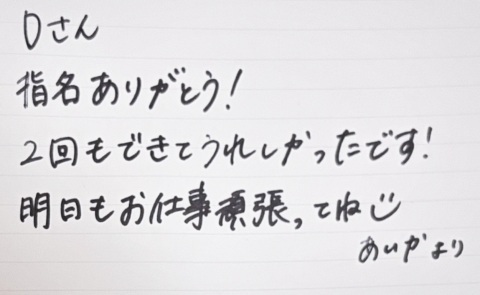 Dさん
指名ありがとう!
2回もできてうれしかったです!
明日もお仕事頑張ってね
あいかより